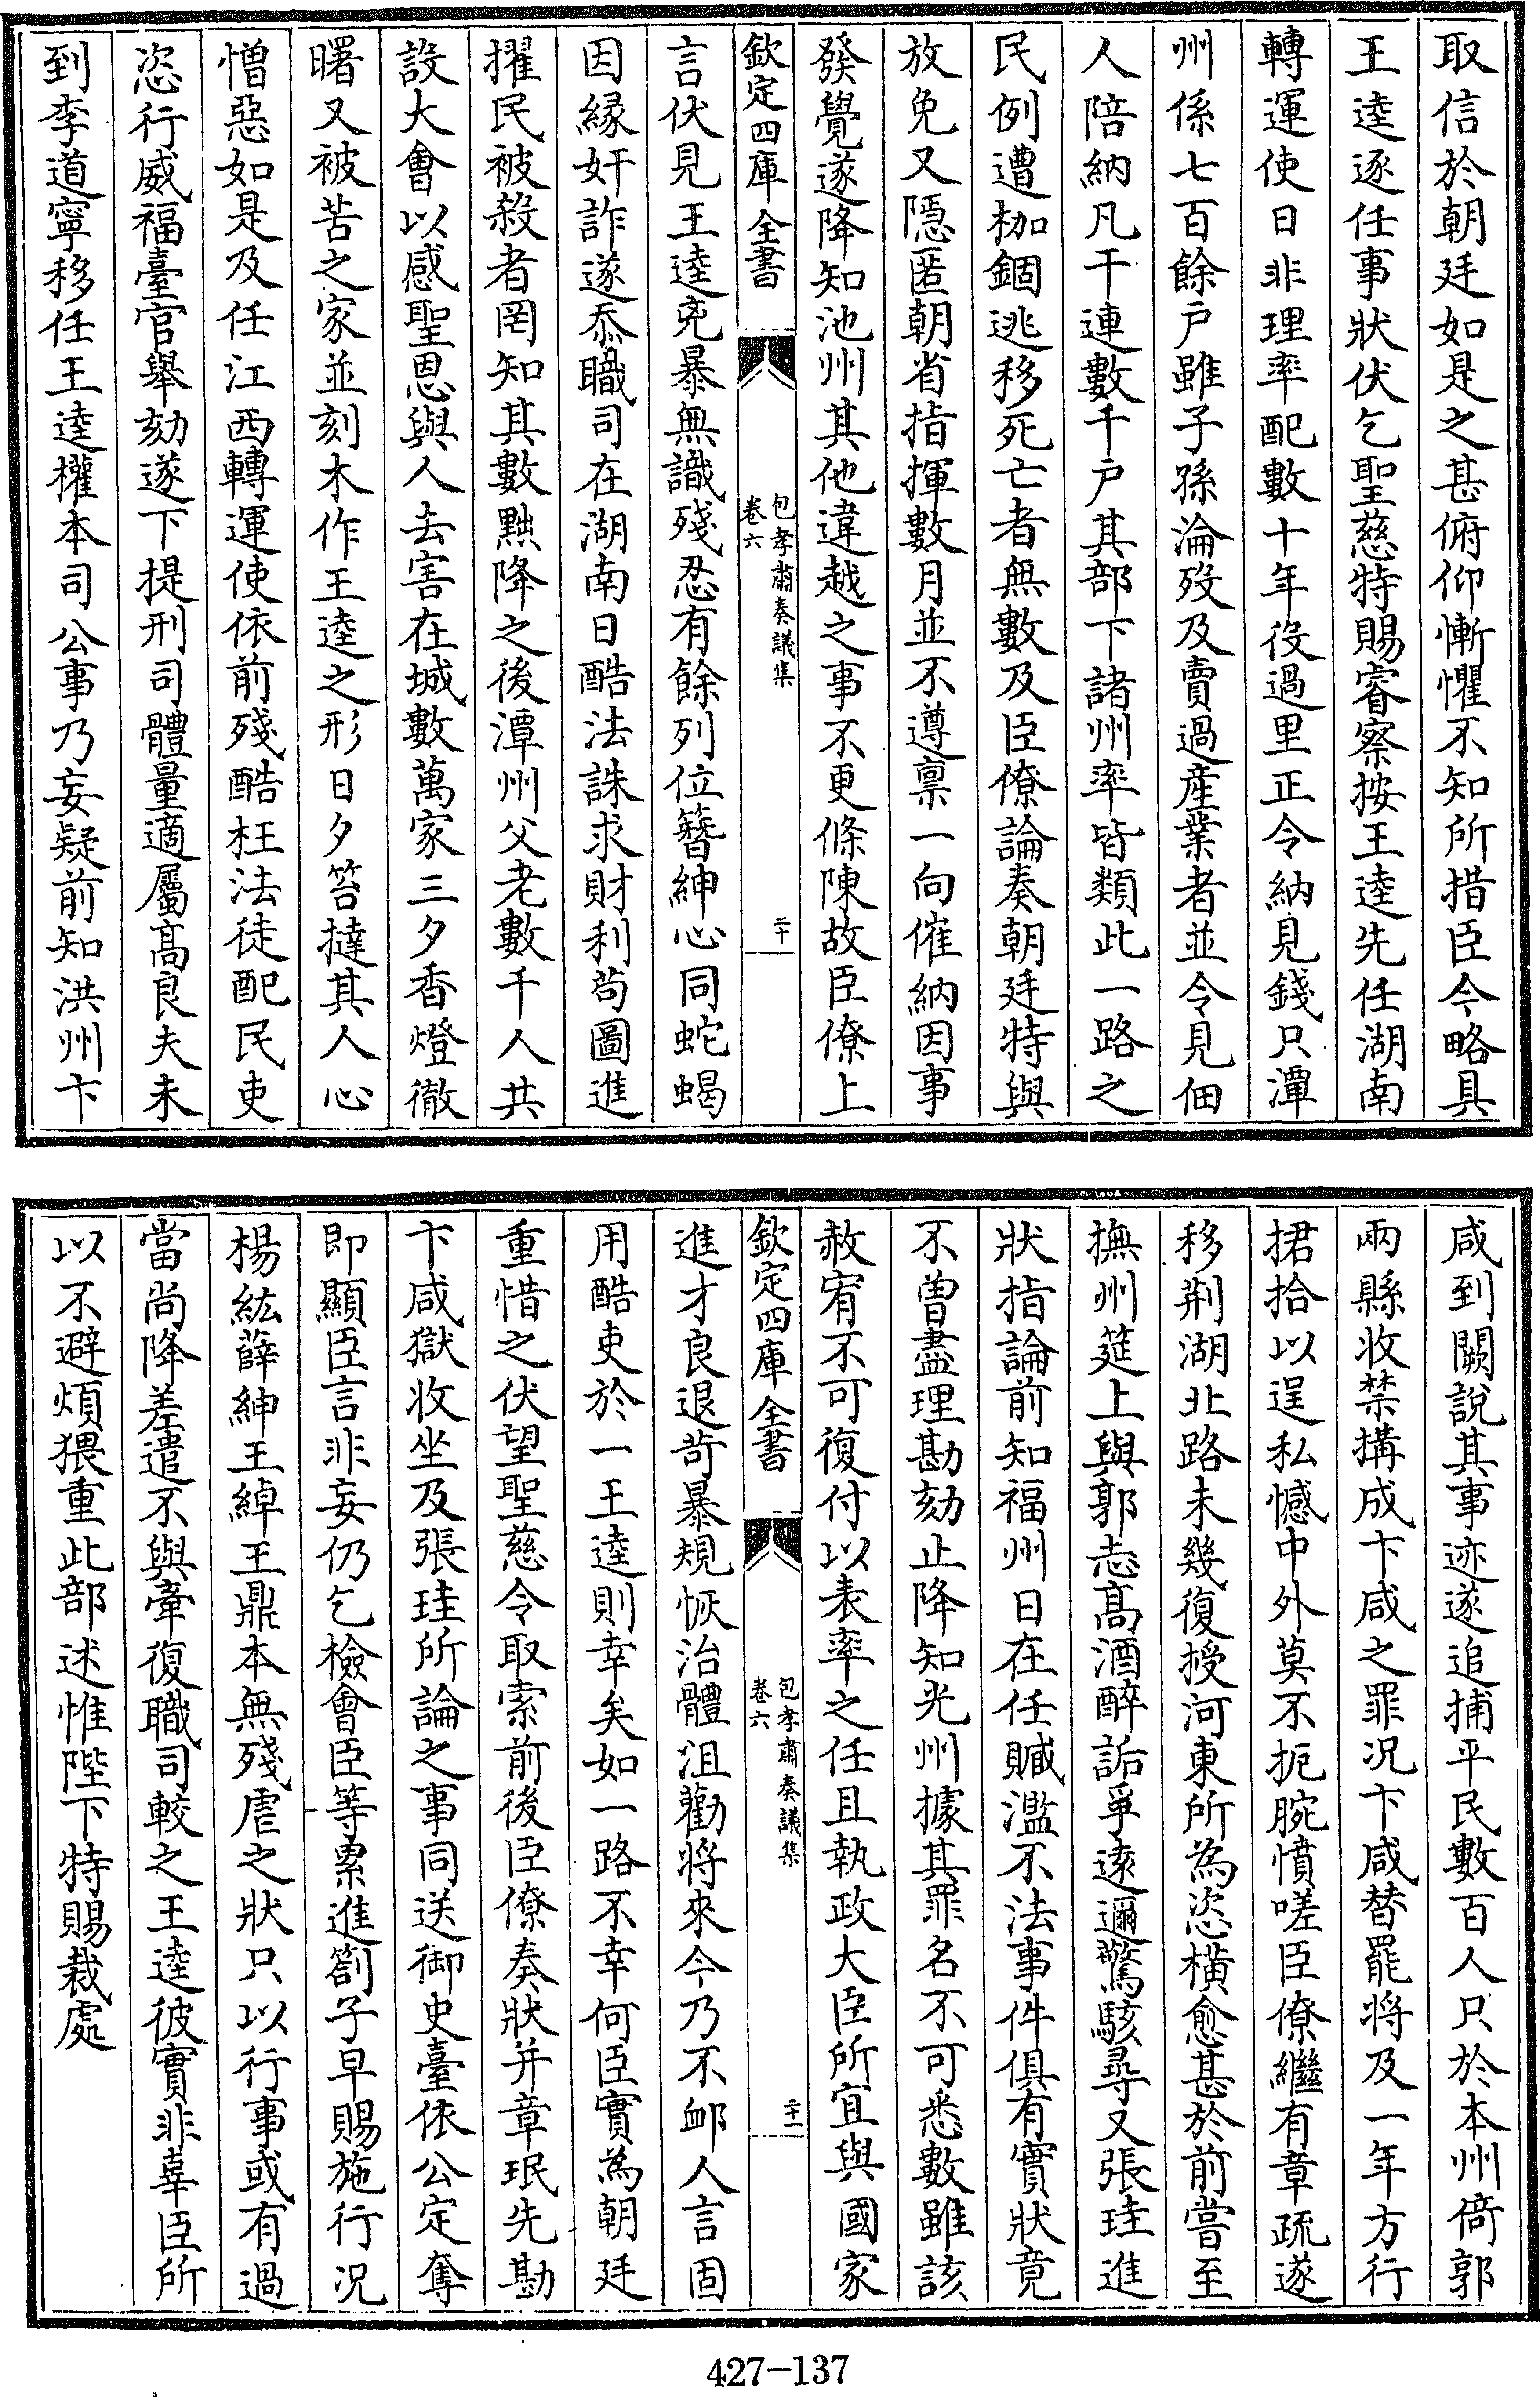 取信於朝廷如是之甚俯仰慚懼不知所措臣今略具
王逵逐任事狀伏乞聖慈特賜睿察按王逵先任湖南
轉運使日非理率配數十年役過里正令納見錢只潭
州係七百餘戸雖子孫淪歿及賣過産業者並令見佃
人陪納凡干連數千戸其部下諸州率皆類此一路之
民例遭枷錮逃移死亡者無數及臣僚論奏朝廷特與
放免又隱匿朝省指揮數月並不遵禀一向催納因事
發覺遂降知池州其他違越之事不更條陳故臣僚上
欽定四庫全書
包孝肅奏議集
卷六
二十
言伏見王逵兇暴無識殘忍有餘列位簪紳心同蛇蝎
因縁奸詐遂忝職司在湖南日酷法誅求財利苟圖進
擢民被殺者罔知其數黜降之後潭州父老數千人共
設大會以感聖恩與人去害在城數萬家三夕香燈徹
曙又被苦之家並刻木作王逵之形日夕笞撻其人心
憎惡如是及任江西轉運使依前殘酷枉法徒配民吏
恣行威福臺官舉劾遂下提刑司體量適屬髙良夫未
到李道寧移任王逵權本司公事乃妄疑前知洪州卞
咸到闕說其事迹遂追捕平民數百人只於本州倚郭
兩縣收禁搆成卞咸之罪况卞咸替罷將及一年方行
捃拾以逞私憾中外莫不扼腕憤嗟臣僚繼有章疏遂
移荆湖北路未幾復授河東所為恣横愈甚於前嘗至
撫州筵上與郭志髙酒醉詬爭遠邇驚駭尋又張珪進
狀指論前知福州日在任贓濫不法事件俱有實狀竟
不曽盡理勘劾止降知光州據其罪名不可悉數雖該
赦宥不可復付以表率之任且執政大臣所宜與國家
欽定四庫全書
包孝肅奏議集
卷六
二十一
進才良退苛暴規恢治體沮勸將來今乃不䘏人言固
用酷吏於一王逵則幸矣如一路不幸何臣實為朝廷
重惜之伏望聖慈令取索前後臣僚奏狀并章珉先勘
卞咸獄收坐及張珪所論之事同送御史臺依公定奪
即顯臣言非妄仍乞檢會臣等累進劄子早賜施行况
楊紘薛紳王綽王鼎本無殘虐之狀只以行事或有過
當尚降差遣不與牽復職司較之王逵彼實非辜臣所
以不避煩猥重此部述惟陛下特賜裁處
427-137